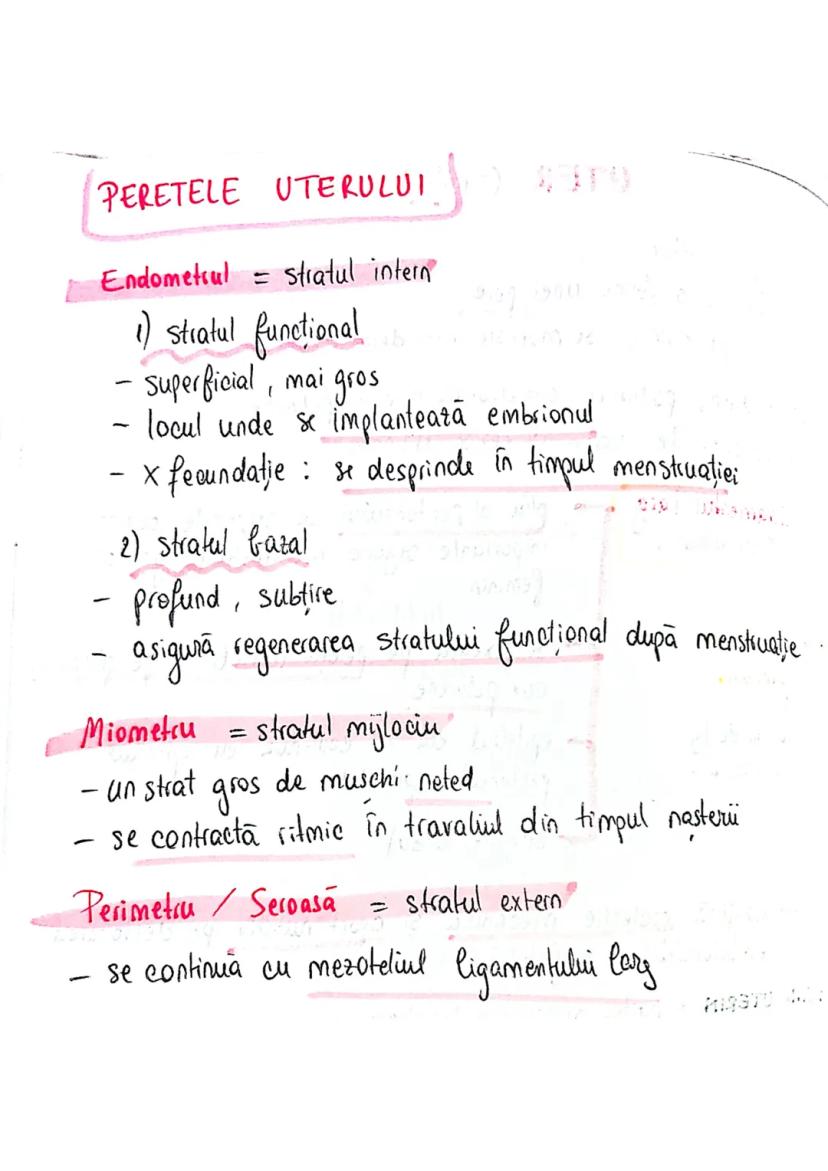 PERETELE UTERULUI
Endometrul = stratul intern
1) stratul funcțional
- superficial, mai gros
- locul unde se implantează embrionul
- x fecundație : se desprinde în timpul menstruației
2) stratul bazal
- profund, subțire
- asigură regenerarea stratului funcțional după menstruație
Miometru = stratul mijlociu
- un strat gros de muschi neted
- se contractă ritmic în travaliul din timpul nașterii
Perimetru / Seroasă = stratul extern
- se continuă cu mezoteliul ligamentului larg